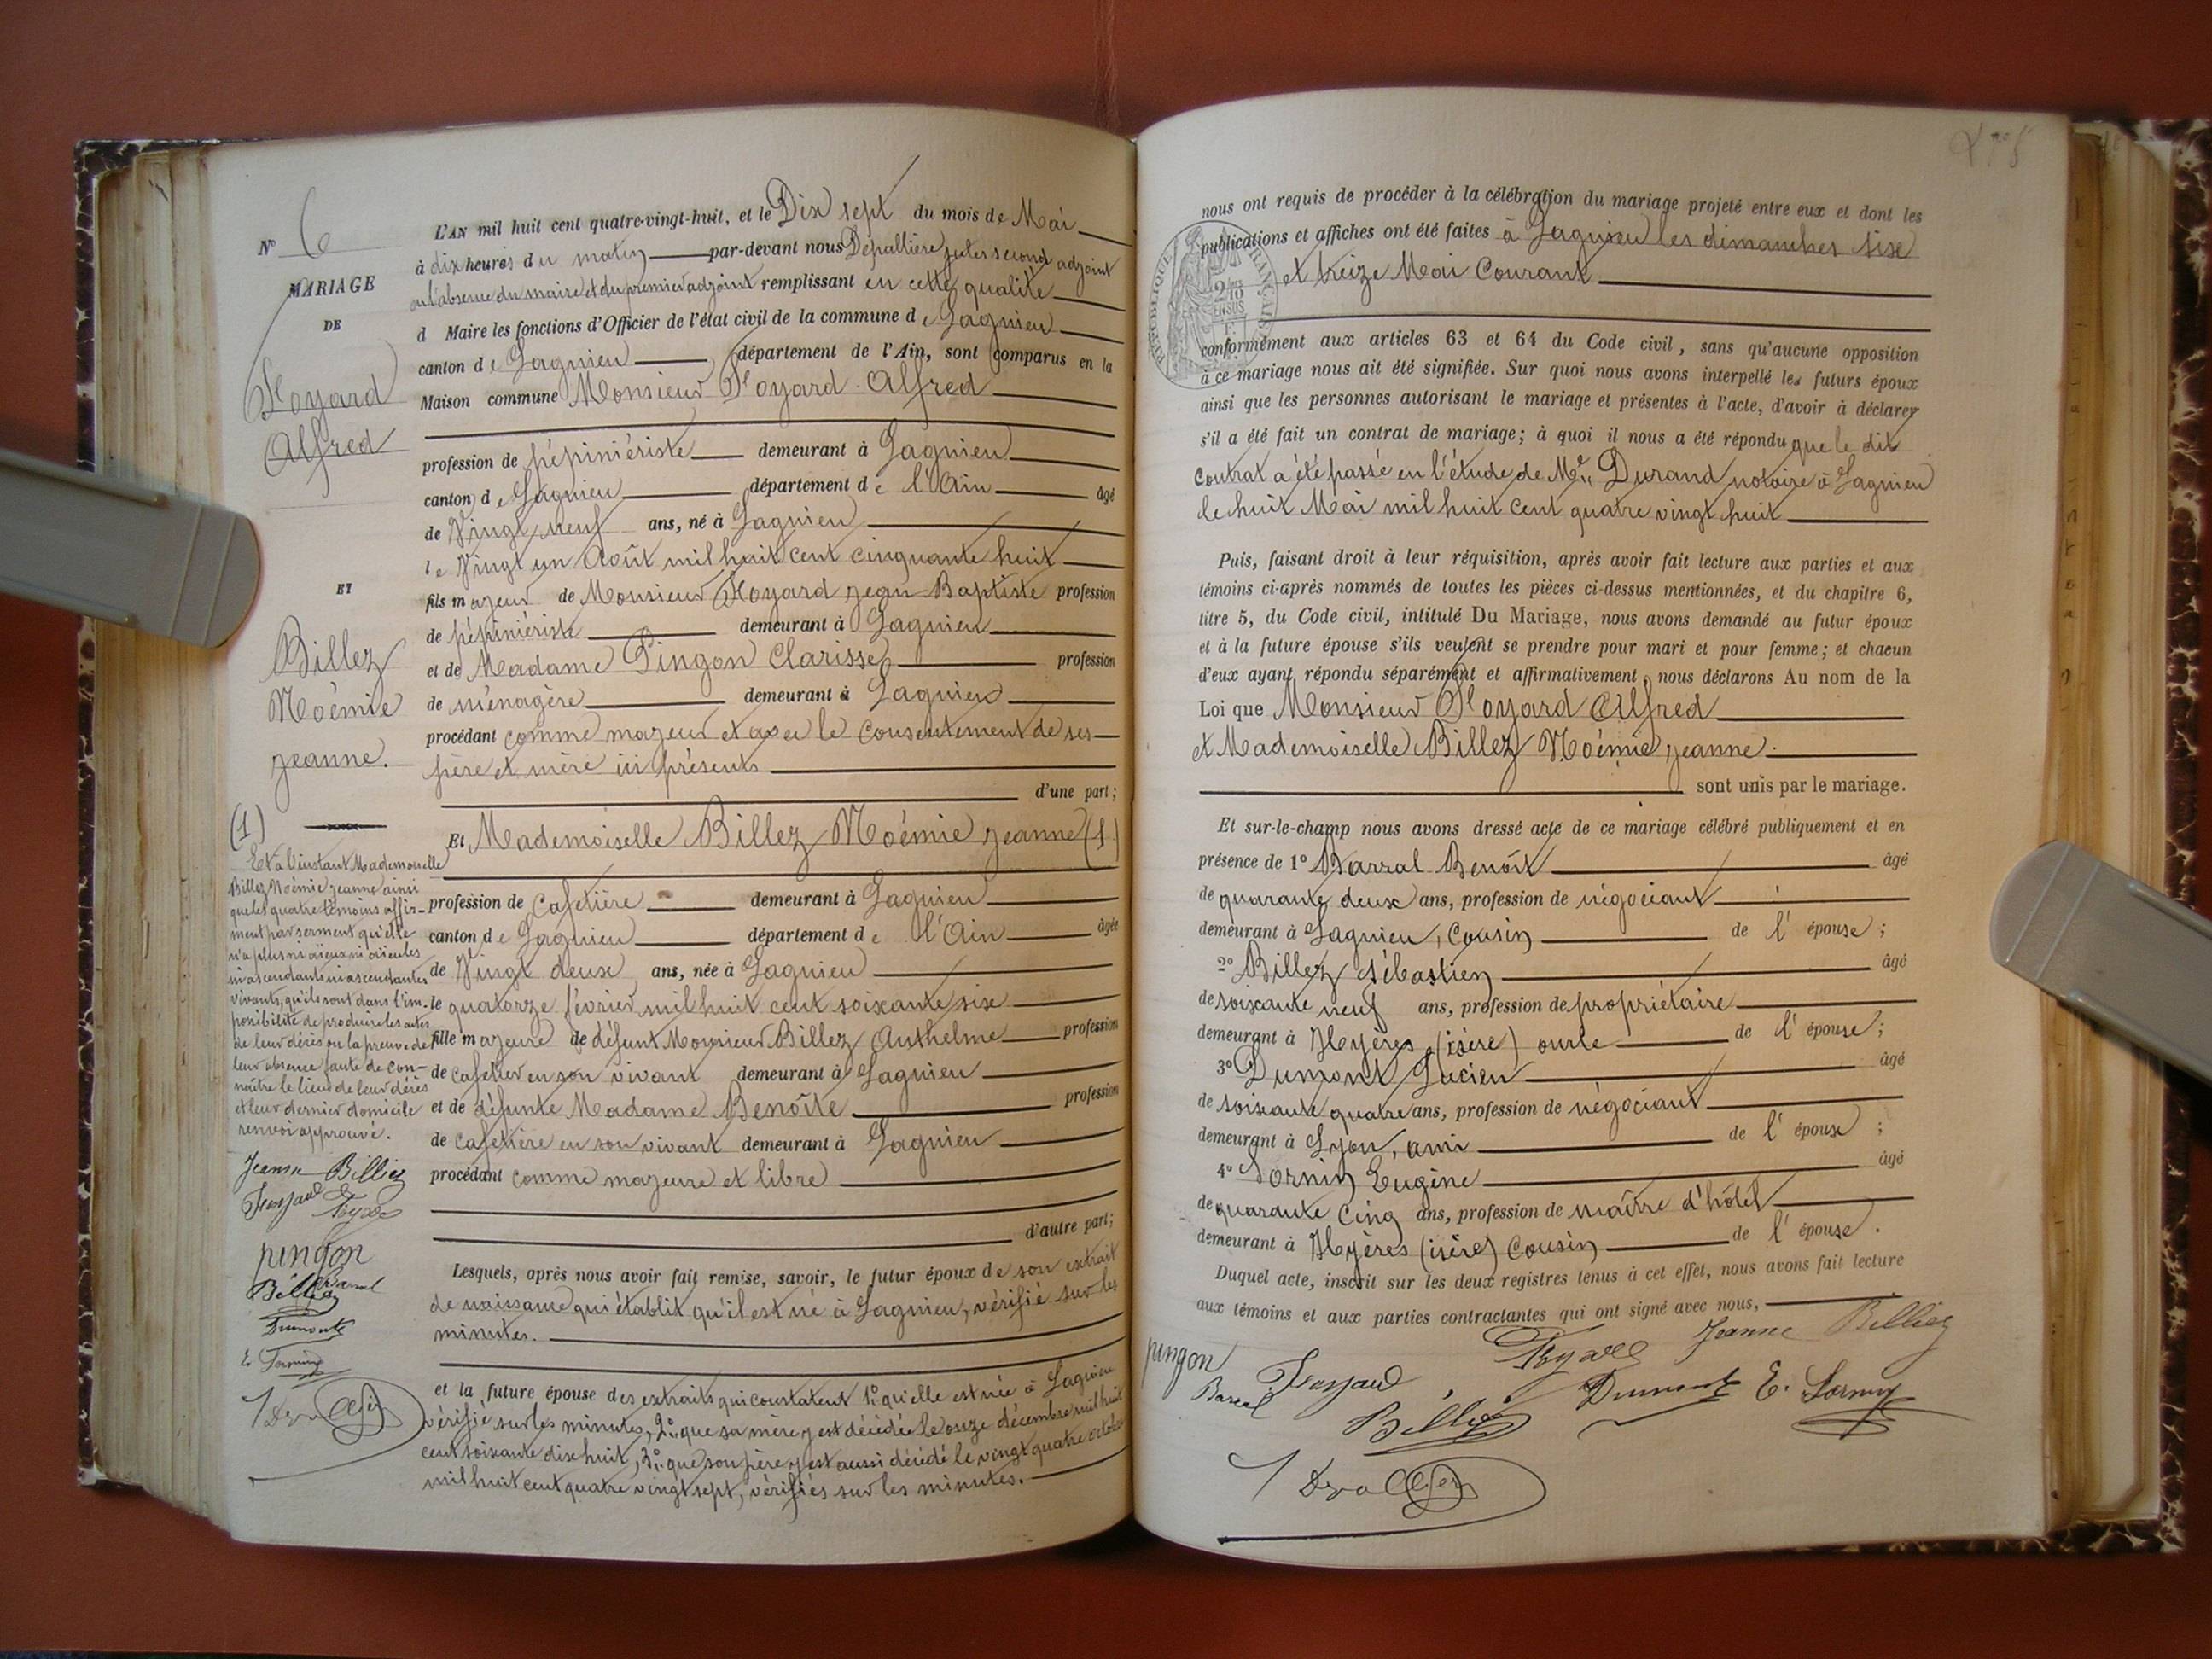 N° 6
MARIAGE
DE
Alfred
ET
Billez
Noémie
jeanne.
(1)
Et à l'instant Mademoiselle
Billez Noémie jeanne ainsi
que les quatre témoins affir-
ment par serment qu'elle
n'a plus ni aïeux ni aïeules
ni ascendants ni ascendantes
vivants, qu'ils sont dans l'im-
possibilité de produire les actes
de leur décès ou la preuve de
leur absence faute de con-
naître le lieu de leur décès
et leur dernier domicile
renvoi approuvé.
Jeanne Billiez
pingon
Barral
Billiez
Dumont
L'AN mil huit cent quatre-vingt-huit, et le Dix sept du mois de Mai
à dix heures du matin par-devant nous Depallière jules second adjoint
en l'absence du maire et du premier adjoint remplissant en cette qualité
d Maire les fonctions d'Officier de l'état civil de la commune de Lagnieu
canton de Lagnieu département de l'Ain, sont comparus en la
Maison commune Monsieur Alfred
profession de pépiniériste demeurant à Lagnieu
canton de Lagnieu département de l'Ain âgé
de Vingt neuf ans, né à Lagnieu
le Vingt un Août mil huit cent cinquante huit
fils majeur de Monsieur jean Baptiste profession
de pépiniériste demeurant à Lagnieu
et de Madame Pingon Clarisse profession
de ménagère demeurant à Lagnieu
procédant comme majeur et avec le consentement de ses
père et mère ici présents
d'une part;
Et Mademoiselle Billez Noémie jeanne (1)
profession de cafetière demeurant à Lagnieu
canton de Lagnieu département de l'Ain âgée
de Vingt deux ans, née à Lagnieu
le quatorze février mil huit cent soixante six
fille majeure de défunt Monsieur Billez Anthelme profession
de cafetier en son vivant demeurant à Lagnieu
et de défunte Madame Benoîte profession
de cafetière en son vivant demeurant à Lagnieu
procédant comme majeure et libre
d'autre part;
Lesquels, après nous avoir fait remise, savoir, le futur époux de son extrait
de naissance qui établit qu'il est né à Lagnieu, vérifié sur les
minutes.
et la future épouse des extraits qui constatent 1° qu'elle est née à Lagnieu
vérifié sur les minutes, 2° que sa mère y est décédée le onze décembre mil huit
cent soixante dix huit, 3° que son père y est aussi décédé le vingt quatre octobre
mil huit cent quatre vingt sept, vérifiés sur les minutes.
nous ont requis de procéder à la célébration du mariage projeté entre eux et dont les
publications et affiches ont été faites à Lagnieu les dimanches six
et treize Mai Courant
conformément aux articles 63 et 64 du Code civil, sans qu'aucune opposition
à ce mariage nous ait été signifiée. Sur quoi nous avons interpellé les futurs époux
ainsi que les personnes autorisant le mariage et présentes à l'acte, d'avoir à déclarer
s'il a été fait un contrat de mariage; à quoi il nous a été répondu que le dit
contrat a été passé en l'étude de Me Durand notaire à Lagnieu
le huit Mai mil huit cent quatre vingt huit
Puis, faisant droit à leur réquisition, après avoir fait lecture aux parties et aux
témoins ci-après nommés de toutes les pièces ci-dessus mentionnées, et du chapitre 6,
titre 5, du Code civil, intitulé Du Mariage, nous avons demandé au futur époux
et à la future épouse s'ils veulent se prendre pour mari et pour femme; et chacun
d'eux ayant répondu séparément et affirmativement, nous déclarons Au nom de la
Loi que Monsieur Alfred
et Mademoiselle Billez Noémie jeanne.
sont unis par le mariage.
Et sur-le-champ nous avons dressé acte de ce mariage célébré publiquement et en
présence de 1° Barral Benoît âgé
de quarante deux ans, profession de négociant
demeurant à Lagnieu, Cousin de l'épouse;
2° Billez Sébastien âgé
de soixante neuf ans, profession de propriétaire
demeurant à Hyères (isère) oncle de l'épouse;
3° Dumont Lucien âgé
de soixante quatre ans, profession de négociant
demeurant à Lyon, ami de l'épouse;
4° Sornin Eugène âgé
de quarante Cinq ans, profession de maître d'hôtel
demeurant à Hyères (isère) Cousin de l'épouse.
Duquel acte, inscrit sur les deux registres tenus à cet effet, nous avons fait lecture
aux témoins et aux parties contractantes qui ont signé avec nous,
pingon
Jeanne Billiez
Barral
Billiez
Dumont
E. Sornin